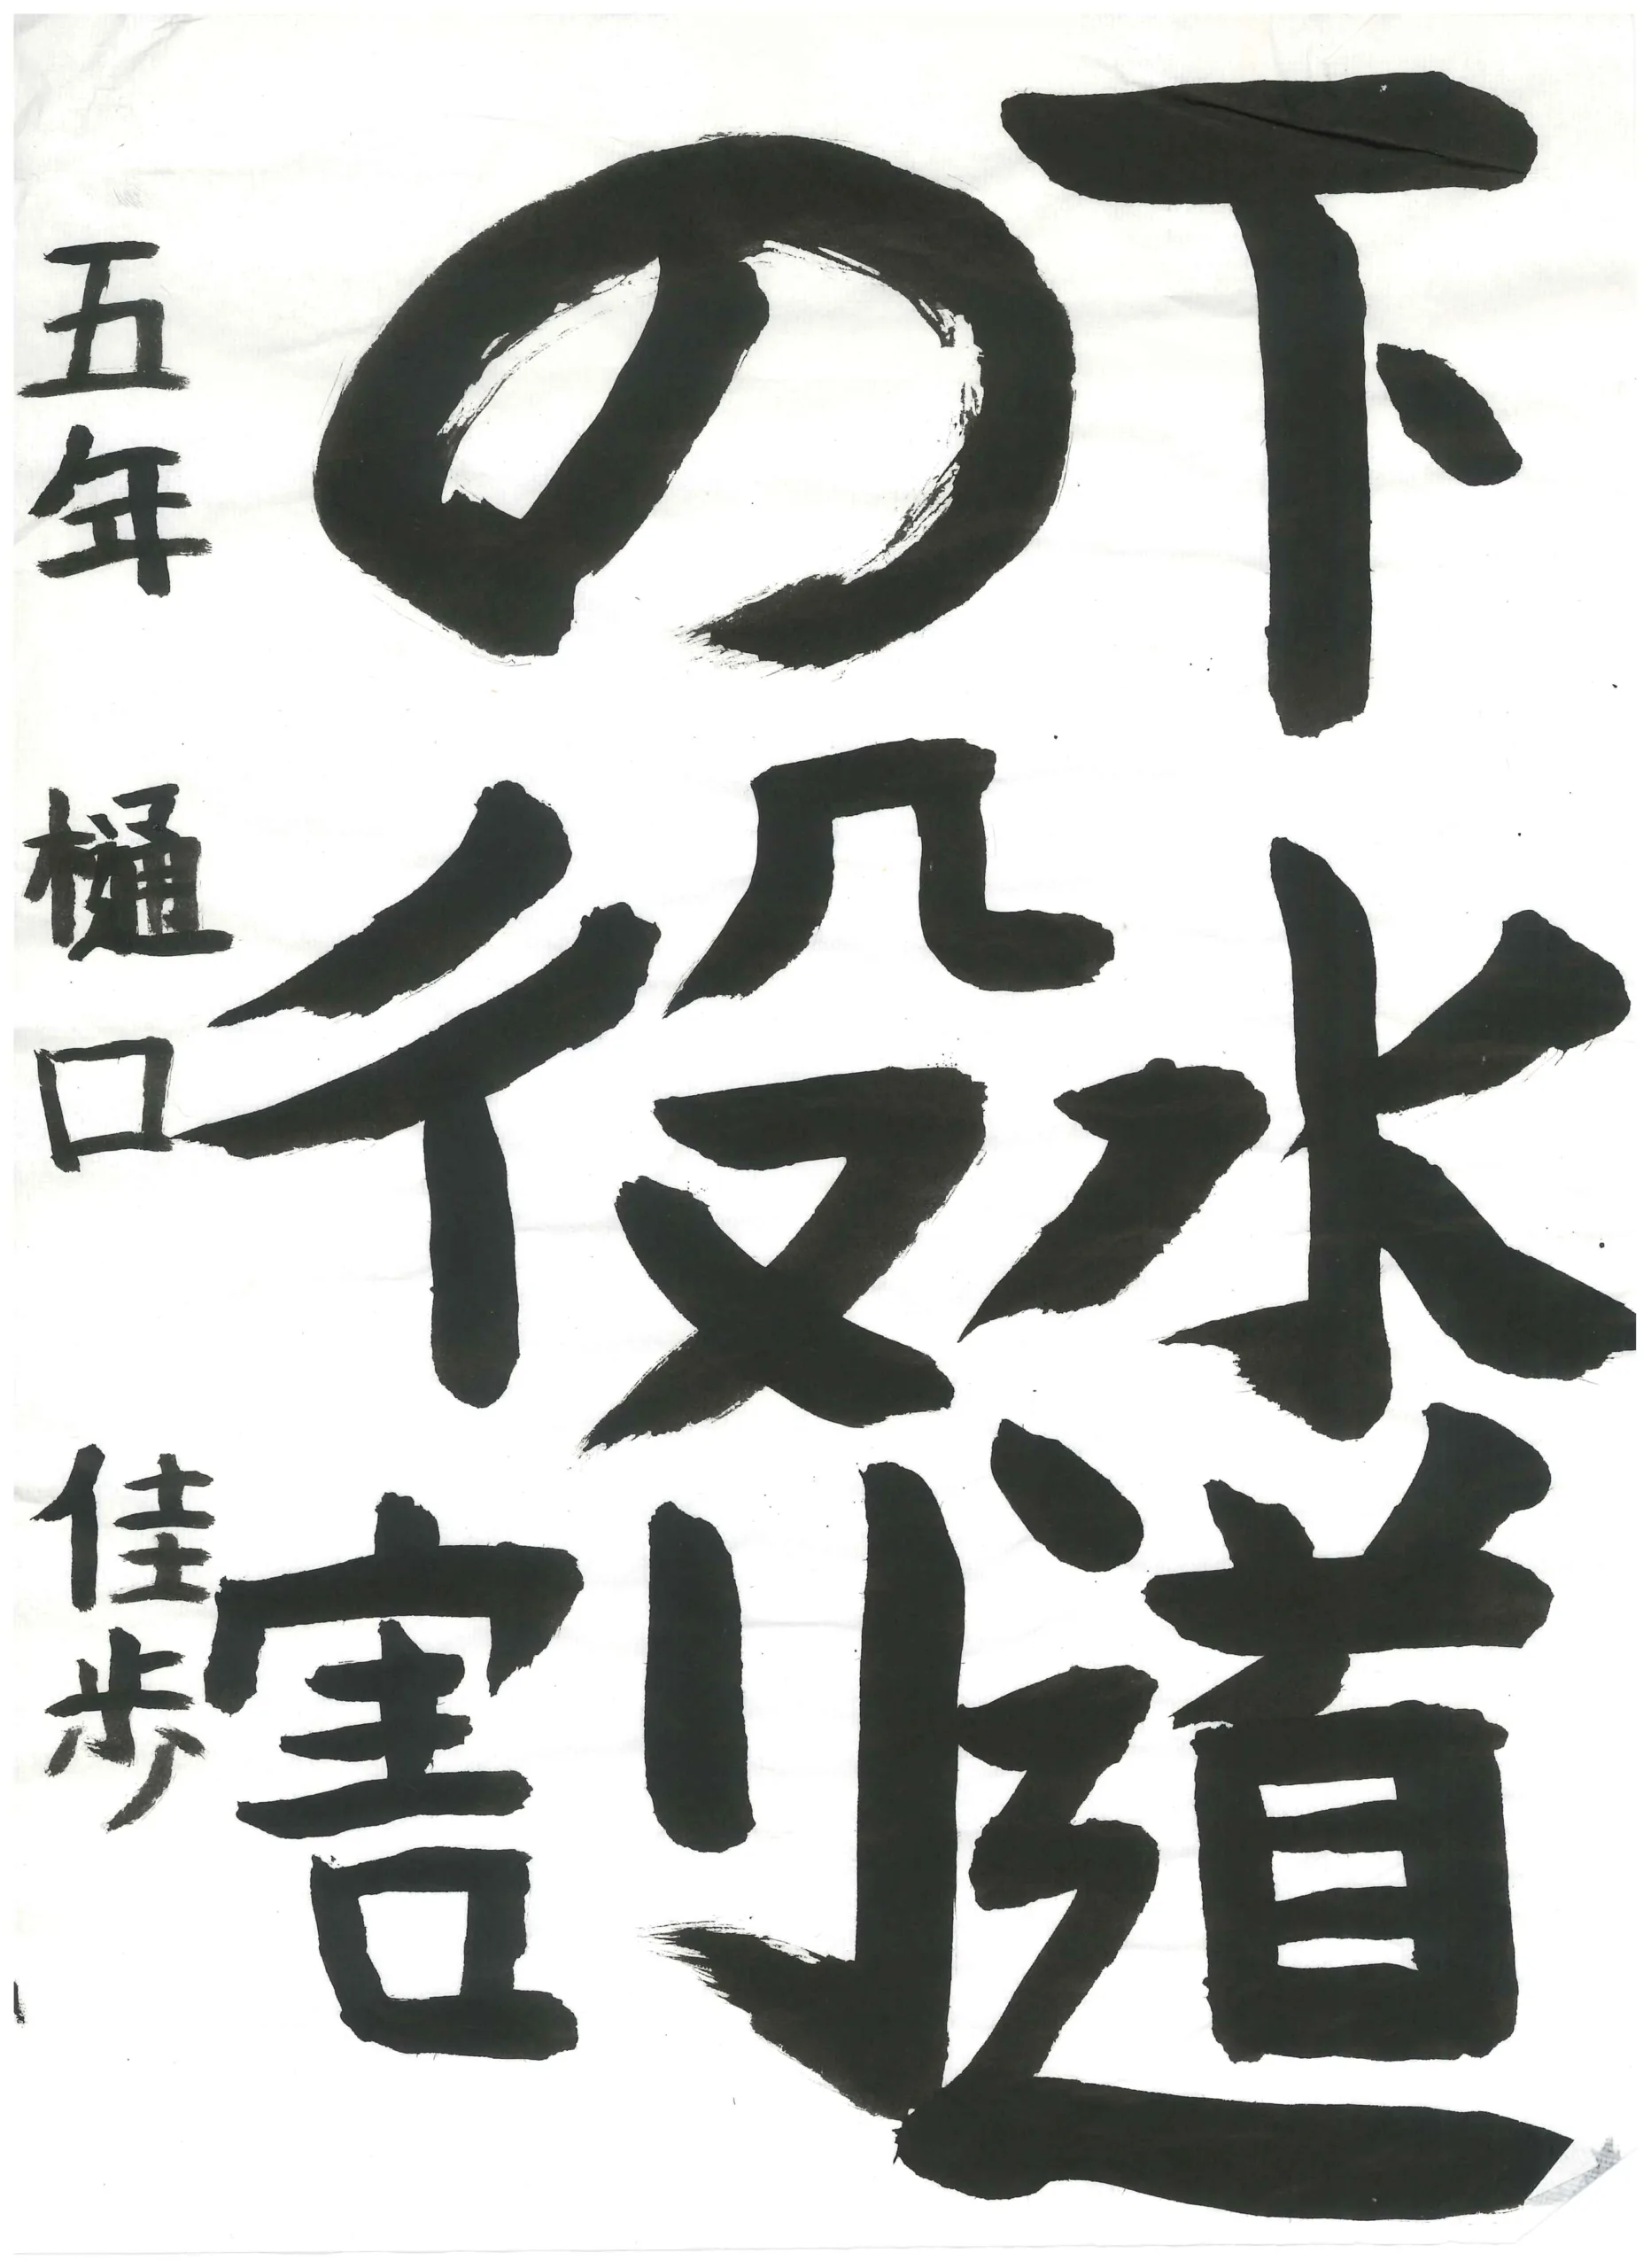 下水道
の役割
五年 樋口 佳歩